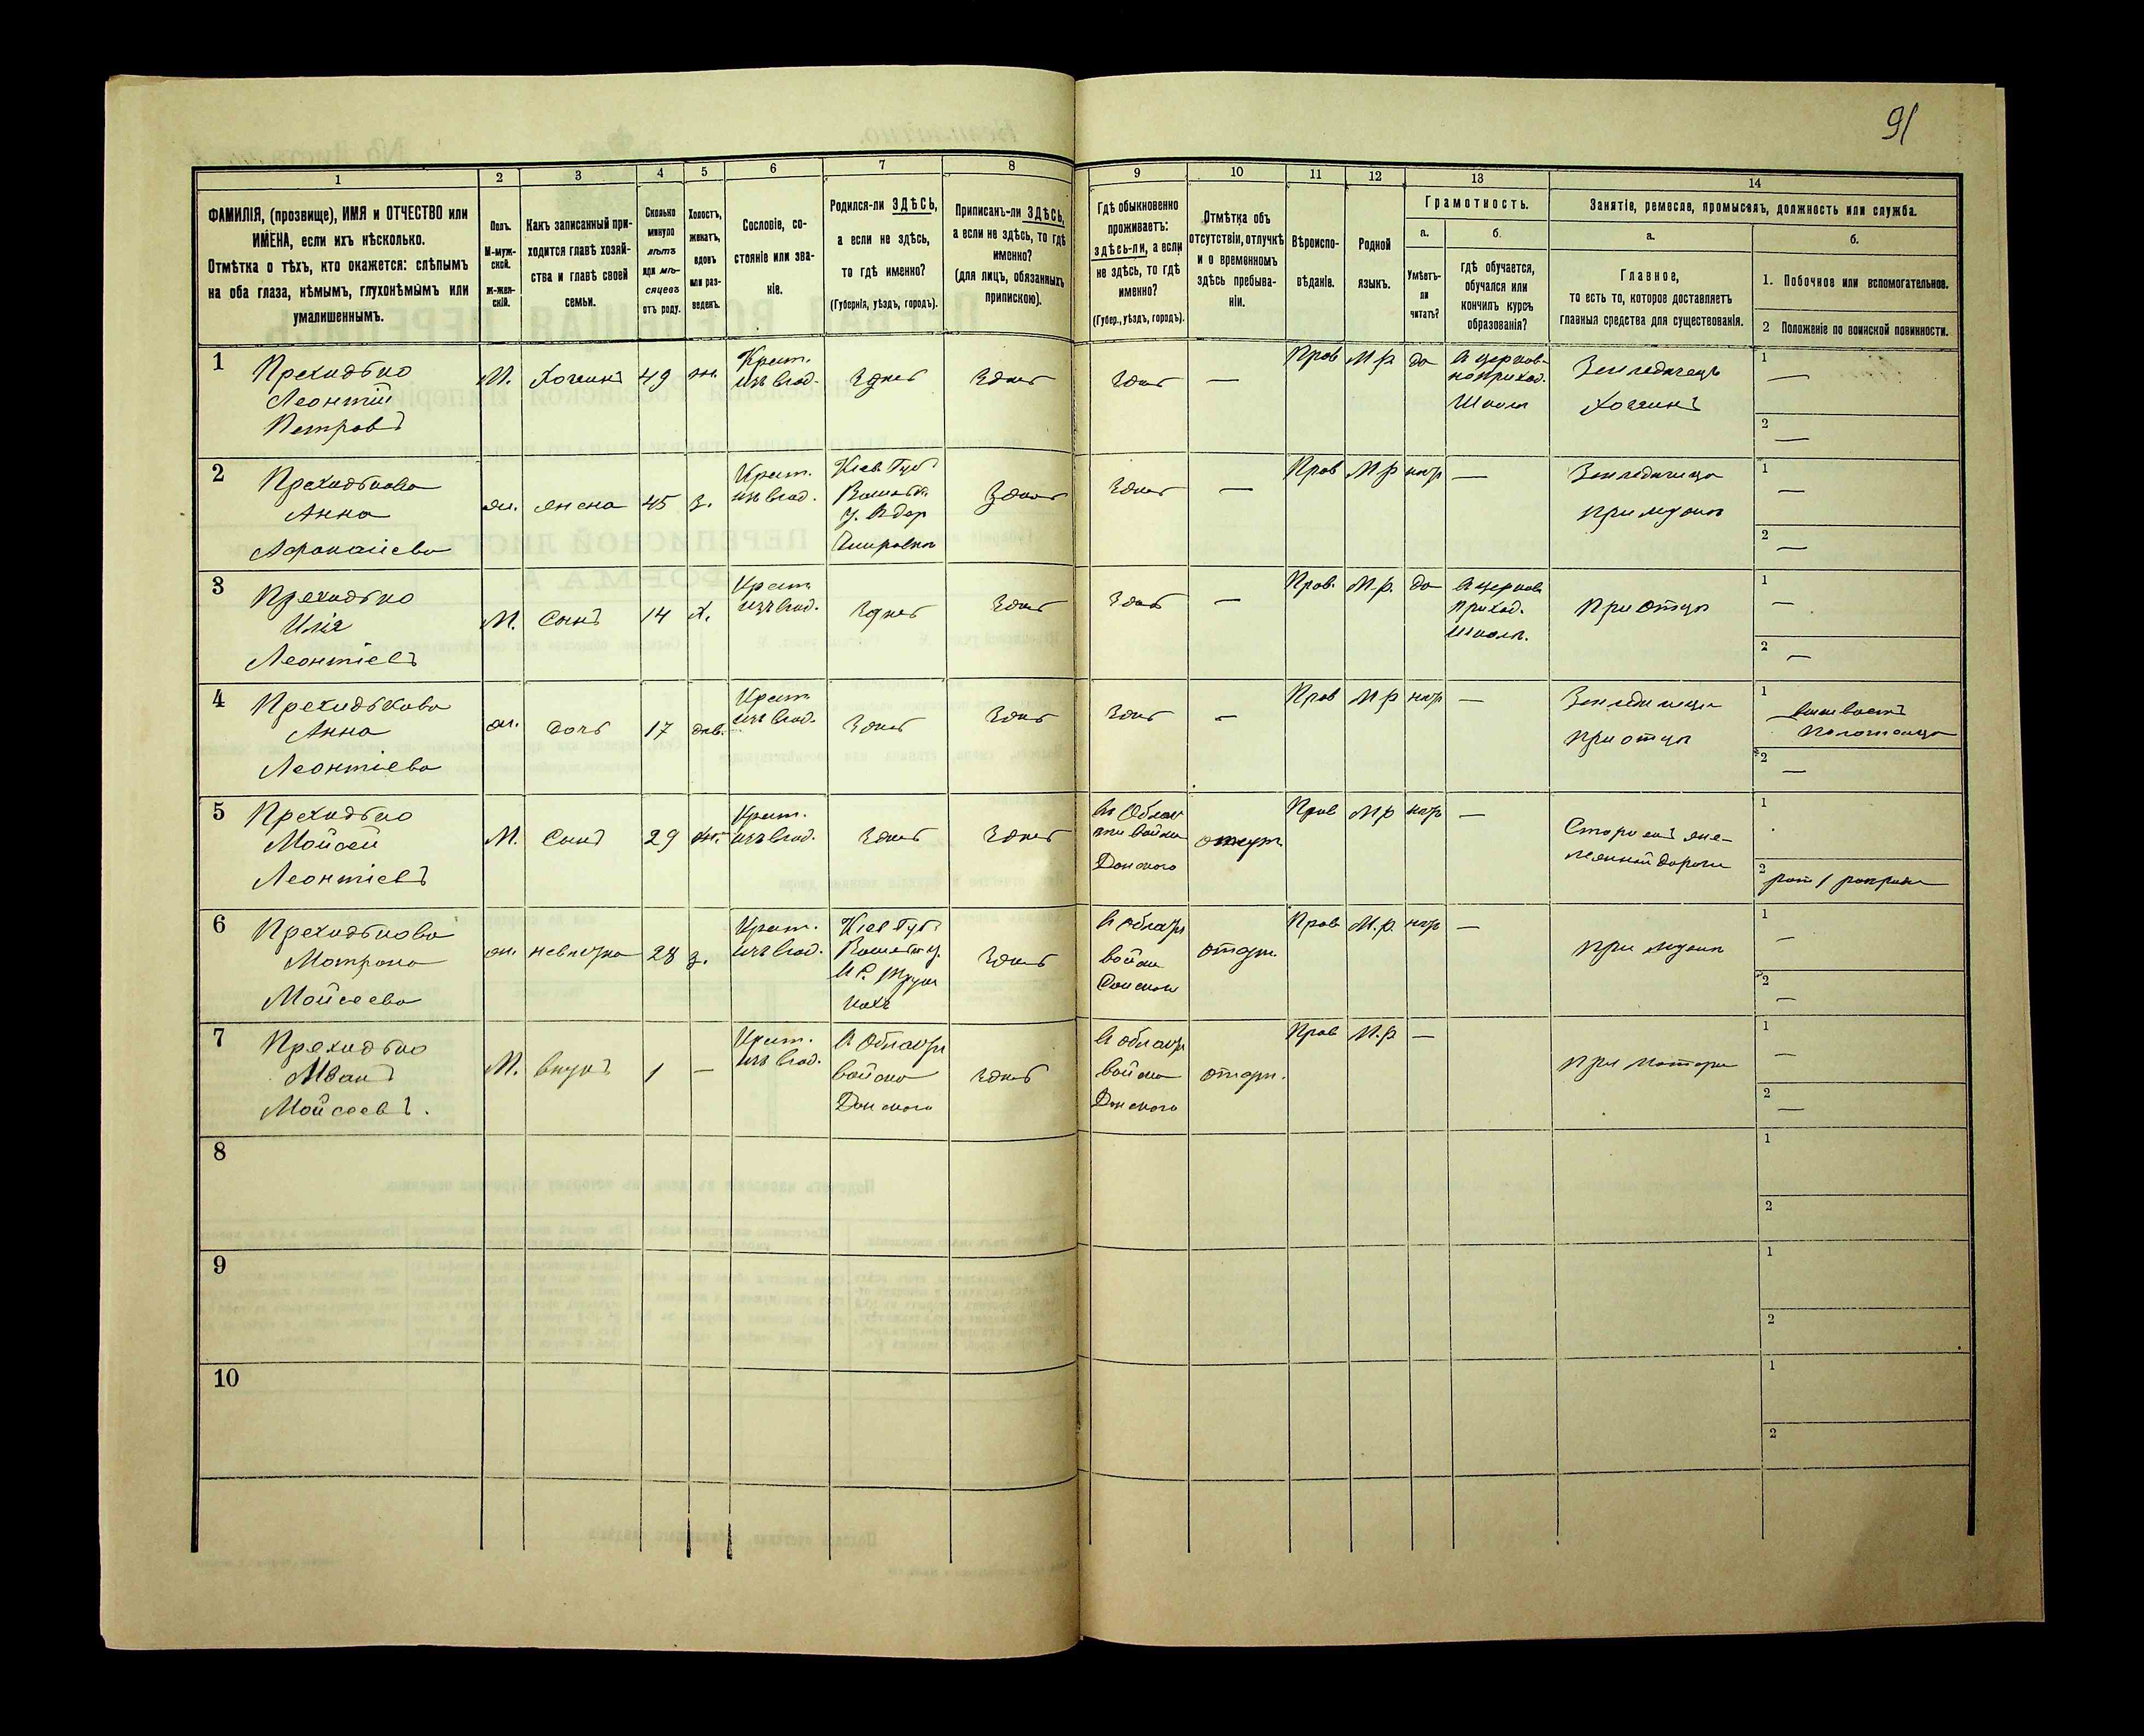 91
1
2
3
4
5
6
7
8
9
10
11
12
13
14
ФАМИЛІЯ, (прозвище), ИМЯ и ОТЧЕСТВО или
ИМЕНА, если ихъ нѣсколько.
Отмѣтка о тѣхъ, кто окажется: слѣпымъ
на оба глаза, нѣмымъ, глухонѣмымъ или
умалишеннымъ.
Полъ.
М-муж-
ской.
Ж-жен-
скій.
Какъ записанный при-
ходится главѣ хозяй-
ства и главѣ своей
семьи.
Сколько
минуло
лѣтъ
или мѣ-
сяцевъ
отъ роду.
Холостъ,
женатъ,
вдовъ
или раз-
веденъ.
Сословіе, со-
стояніе или зва-
ніе.
Родился-ли ЗДѢСЬ,
а если не здѣсь,
то гдѣ именно?
(Губернія, уѣздъ, городъ).
Приписанъ-ли ЗДѢСЬ,
а если не здѣсь, то гдѣ
именно?
(для лицъ, обязанныхъ
припискою).
Гдѣ обыкновенно
проживаетъ:
здѣсь-ли, а если
не здѣсь, то гдѣ
именно?
(Губер., уѣздъ, городъ).
Отмѣтка объ
отсутствіи, отлучкѣ
и о временномъ
здѣсь пребыва-
ніи.
Вѣроиспо-
вѣданіе.
Родной
языкъ.
Грамотность.
а.
Умѣетъ-
ли
читать?
б.
гдѣ обучается,
обучался или
кончилъ курсъ
образованія?
Занятіе, ремесло, промыселъ, должность или служба.
а.
Главное,
то есть то, которое доставляетъ
главныя средства для существованія.
б.
1. Побочное или вспомогательное.
2 Положеніе по воинской повинности.
1
Преходько
Леонтій
Петровъ
М.
Хозяинъ
49
жн.
Крест.
изъ влад.
Здесь
Здесь
Здесь
—
Прав
М р
да
В церков-
ноприход.
Школе
Земледелецъ
Хозяинъ
1 —
2 —
2
Преходькова
Анна
Афанасіева
ж.
жена
45
з.
Крест.
изъ влад.
Кіев Губ
у. В дер
Здесь
Здесь
—
Прав
М р
негр
—
Земледелица
при муже
1 —
2 —
3
Преходько
Илія
Леонтіевъ
М.
Сынъ
14
х.
Крест
изъ влад.
Здесь
Здесь
Здесь
—
Прав.
М.р.
да
В церков
приход.
школе.
При отце
1 —
2 —
4
Преходькова
Анна
Леонтіева
ж.
дочь
17
дев.
Крест
изъ влад.
Здесь
Здесь
Здесь
—
Прав
М р
негр
—
Земледелица
при отце
1
2 —
5
Преходько
Мойсей
Леонтіевъ
М.
Сынъ
29
жн.
Крест.
изъ влад.
Здесь
Здесь
В Облас
ти Войска
Донского
Прав
М р
негр
—
Сторожъ же-
лезной дороги
1
2
6
Преходькова
Матрона
Мойсеева
ж.
невестка
28
з.
Крест.
изъ влад.
Кіев Губ
Здесь
В области
войска
Донского
Прав
М.р.
негр
—
при муже
1 —
2 —
7
Преходько
Иванъ
Мойсеевъ.
М.
внукъ
1
—
Крест.
изъ влад.
В Области
войска
Донского
Здесь
В области
войска
Донского
Прав
М.р
—
при матери
1 —
2 —
8
1
2
9
1
2
10
1
2